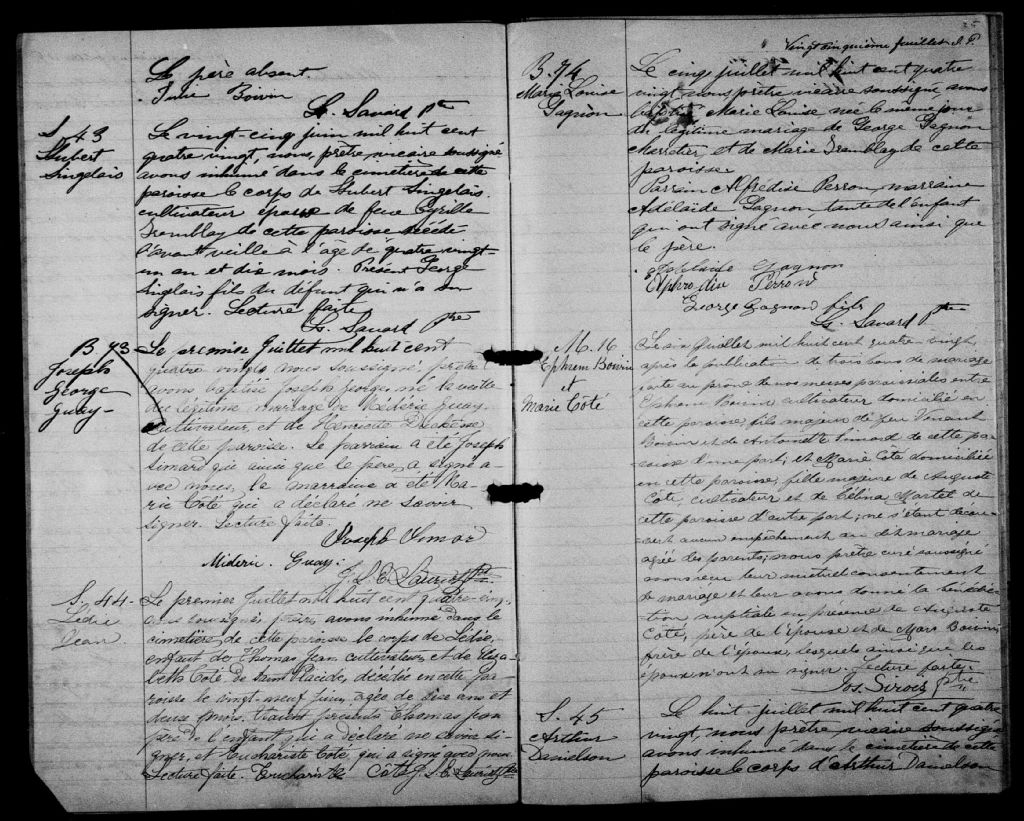 Le père absent.
Julie Boivin
L. Savard Ptre
S. 43
Hubert
Singelais
Le vingt-cinq juin mil huit cent
quatre vingt, nous, prêtre, vicaire soussigné
avons inhumé dans le cimetière de cette
paroisse le corps de Hubert Singelais
cultivateur époux de feue Cyrille
Tremblay de cette paroisse décédé
l'avant veille à l'âge de quatre vingt-
un an et dix mois. Présent George
Singlais fils du défunt qui n'a su
signer. Lecture faite
L. Savard Ptre
B 73
Joseph
George
Guay-
Le premier Juillet mil huit cent
quatre vingts nous soussigné prêtre
avons baptisé Joseph George, né la veille
du légitime mariage de Médéric Guay
Cultivateur, et de Henriette
de cette paroisse. Le parrain a été Joseph
Simard qui ainsi que le père a signé a-
vec nous, la marraine a été Ma-
rie Coté qui a déclaré ne savoir
signer. Lecture faite.
Joseph Simar
Midéric Guay.
J. S. E. Ptre
S. 44-
Ledie
Jean
Le premier Juillet mil huit cent quatre-ving,
nous soussigné prêtre, avons inhumé dans le
cimetière de cette paroisse le corps de Ledie,
enfant de Thomas Jean cultivateur, et de Elisa-
beth Coté de Saint Placide, décédée en cette pa-
roisse le vingt-neuf Juin, agée de dix ans et
deux mois. Etaient présents Thomas Jean
père de l'enfant qui a déclaré ne savoir si-
gner, et Euchariste Coté, qui a signé avec nous.
Lecture faite. Euchariste Côté J. S. E. Ptre
25
Vingt cinquième feuillet J. P.
B. 74
Marie Louise
Gagnon
Le cinq juillet mil huit cent quatre
vingt, nous prêtre vicaire soussigné avons
baptisé Marie Louise née le même jour
du légitime mariage de George Gagnon
Menuisier, et de Marie Tremblay de cette
paroisse.
Parrain Alfrédise Perron, marraine
Adélaïde Gagnon tante de l'Enfant
qui ont signé avec nous ainsi que
le père.
Adelaide Gagnon
Elphrodise Perron
George Gagnon fils
L. Savard Ptre
M. 16
Ephrem Boivin
et
Marie Côté
Le six Juillet mil huit cent quatre-vingt,
après la publication de trois bans de mariage
faite au prone de nos messes paroissiales entre
Ephrem Boivin cultivateur domicilié en
cette paroisse, fils majeur de feu Vinant
Boivin et de Antoinette Simard de cette pa-
roisse d'une part; et Marie Coté domiciliée
en cette paroisse, fille majeure de Auguste
Coté, cultivateur et de Célina Martel de
cette paroisse d'autre part; ne s'étant décou-
vert aucun empêchement au dit mariage
agréé des parents; nous prêtre curé soussigné
avons reçu leur mutuel consentement
de mariage et leur avons donné la bénédic-
tion nuptiale en presence de Auguste
Coté, père de l'épouse et de Marc Boivin
frère de l'époux, lesquels ainsi que les
époux n'ont su signer. Lecture faite.
Jos. Sirois Ptre
S. 45
Arthur
Danielson
Le huit juillet mil huit cent quatre
vingt, nous prêtre, vicaire soussigné
avons inhumé dans le cimetière de cette
paroisse le corps d'Arthur Danielson